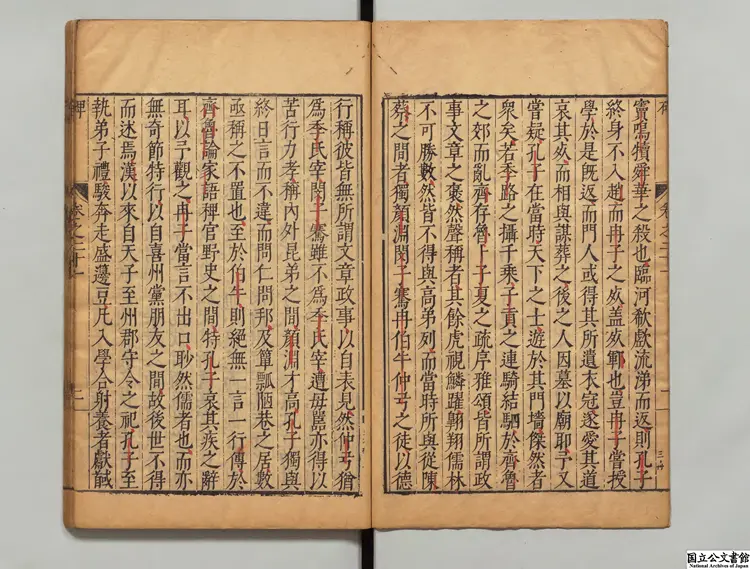 竇鳴犢舜華之殺也臨河歎獻流涕而返則孔子
終身不入趙而冉子之歿盖歿鄆也豈冉子嘗授
學於是旣返而門人或得其所遺衣冠遂愛其道
哀其歿而相與謀葬之後之人因墓以廟耶予又
嘗疑孔子在當時天下之士遊於其門墻傑然者
衆矣若季路之攝千乗子貢之連騎結駟於齊魯
之郊而亂齊存魯卜子夏之疏序雅頌皆所謂政
事文章之褒然聲稱者其餘虎視鱗躍翺翔儒林
不可勝數然皆不得與高弟列而當時所與從陳
蔡之間者獨顔淵閔子騫冉伯牛仲弓之徒以德
行稱彼皆無所謂文章政事以自表見然仲弓猶
爲季氏宰閔子騫雖不爲季氏宰遭母嚚亦得以
苦行力孝稱內外昆弟之間顔淵才高孔子獨與
終日言而不違而問仁問邦及簞瓢陋巷之居數
亟稱之不置也至於伯牛則絕無一言一行傳於
齊魯論家語稗官野史之間特孔子哀其疾之辭
耳以予觀之冉子當言不出口耿然儒者也而亦
無奇節特行以自喜州黨朋友之間故後世不得
而述焉漢以來自天子至州郡守令之祀孔子至
執弟子禮駿奔走盛籩豆凡入學合射養者獻馘
卷之二十一
國立公文書館
National Archives of Japan